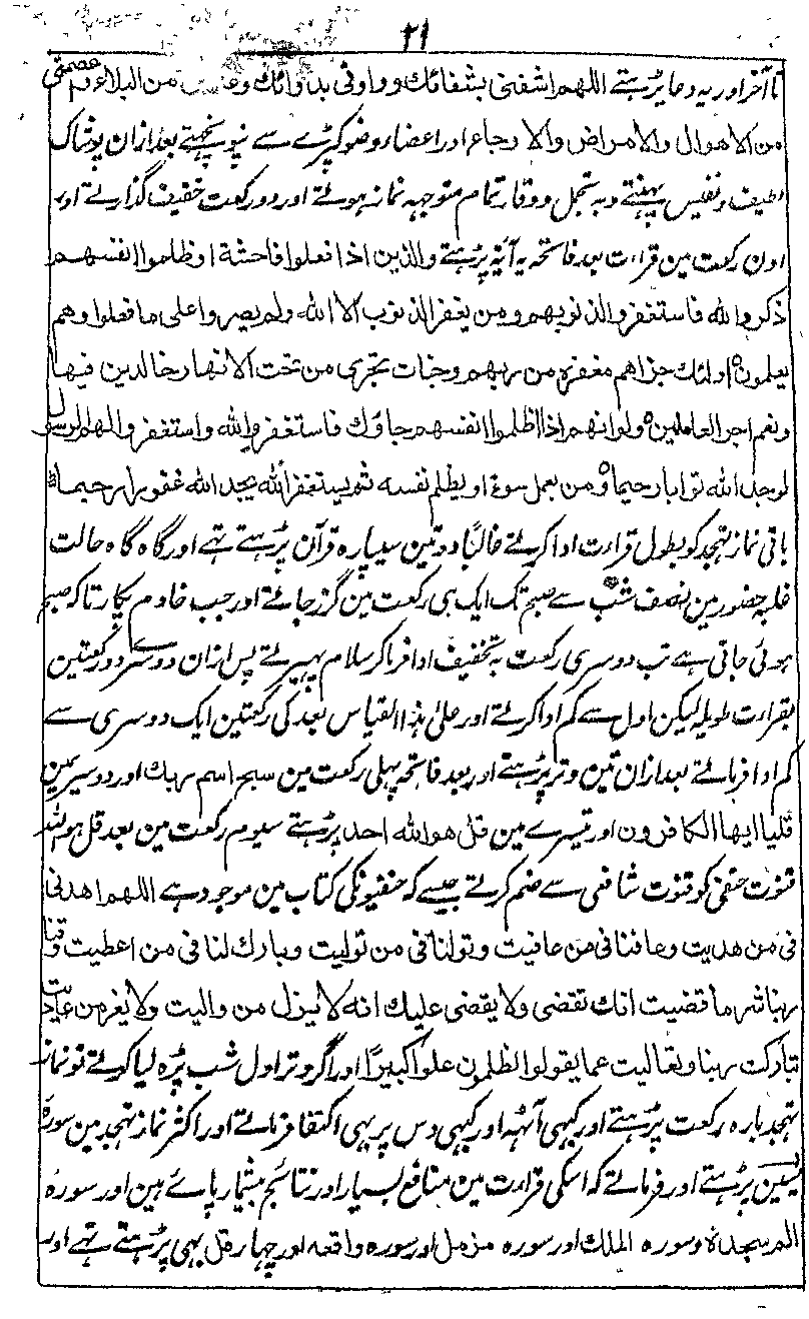 ۲۱
تا آخر اور یہ دعا پڑہتے اللهم اشفنی بشفائك وداونی بدوائك من البلاء واعصمنی
من الاهوال والامراض والاوجاع اور اعضاء وضو کپڑے سے نپونچہتے بعد ازان پوشاک
لطیف ونفیس پہنتے وبہ تجمل ووقار تمام متوجہ نماز ہوتے اور دو رکعت خفیف گذارتے اور
اون رکعت مین قراءت بعد فاتحہ یہ آیۃ پڑہتے والذین اذا فعلوا فاحشة اوظلموا انفسهم
ذکروا الله فاستغفروا لذنوبهم ومن یغفر الذنوب الا الله ولم یصروا علی ما فعلوا وهم
یعلمون اولئك جزاهم مغفرة من ربهم وجنات تجری من تحت الانهار خالدین فیها
ونعم اجر العاملین ولو انهم اذا ظلموا انفسهم جاؤك فاستغفروا الله واستغفر والهم الرسول
لوجد الله توابا رحیما ومن یعمل سوءا او یظلم نفسه ثم یستغفر الله یجد الله غفورا رحیما
باقی نماز تہجد کو بطول قراءت ادا کرتے غالبًا دو تین سیپارہ قرآن پڑہتے تہے اور گاہ گاہ حالت
غلبہ حضور مین نصف شب سے صبح تک ایک ہی رکعت مین گزر جاتے اور جب خادم پکارتا کہ صبح
ہوئی جاتی ہے تب دوسری رکعت بہ تخفیف ادا فرماکر سلام پہیرتے پس ازان دوسرے دو رکعتین
بقراءت طویلہ لیکن اول سے کم ادا کرتے اور علی ہذا القیاس بعد کی رکعتین ایک دوسری سے
کم ادا فرماتے بعد ازان تین وتر پڑہتے اور بعد فاتحہ پہلی رکعت مین سبح اسم ربك اور دوسیر مین
قل یا ایها الکافرون اور تیسرے مین قل هو الله احد پڑہتے سیوم رکعت مین بعد قل هو الله
قنوت حنفی کو قنوت شافعی سے ضم کرتے جیسے کہ حنفیونکی کتاب مین موجود ہے اللهم اهدنی
فی من هدیت وعافنا فی من عافیت وتولنا فی من تولیت وبارك لنا فی من اعطیت وقنا
ربنا شر ما قضیت انك تقضی ولا یقضی علیك انه لا یزل من والیت ولا یعز من عادیت
تبارکت ربنا وتعالیت عما یقولوا الظلمون علوا کبیرًا اور اگر وتر اول شب پڑہ لیا کرتے تو نماز
تہجد بارہ رکعت پڑہتے اور کبہی آٹہہ اور کبہی دس پر بہی اکتفا فرماتے اور اکثر نماز تہجد مین سورۂ
یٰسین پڑہتے اور فرماتے کہ اسکی قراءت مین منافع بسیار اور نتائج بیشمار پائے ہین اور سورۂ
الم سجدة وسورہ الملك اور سورہ مزمل اور سورہ واقعہ اور چہار قل بہی پڑہتے تہے اور